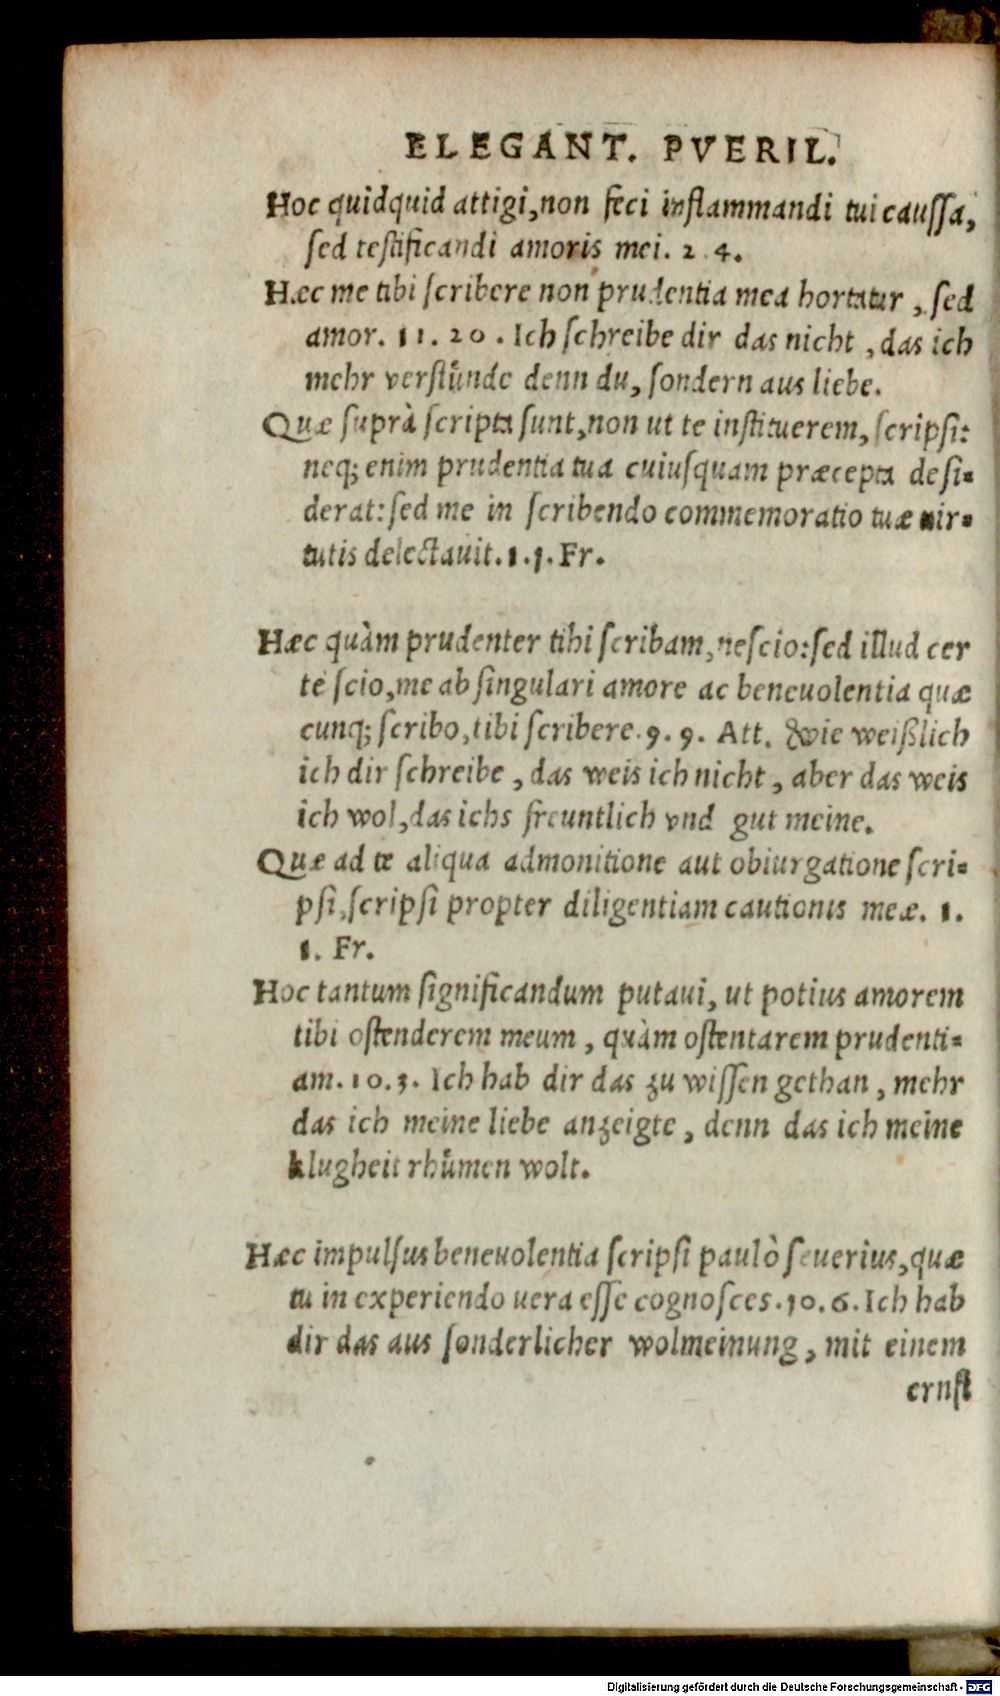 ELEGANT. PVERIL.
Hoc quidquid attigi, non feci inflammandi tui caussa,
sed testificandi amoris mei. 2. 4.
Hæc me tibi scribere non prudentia mea hortatur, sed
amor. 11. 20. Ich schreibe dir das nicht, das ich
mehr verstůnde denn du, sondern aus liebe.
Quæ suprà scripta sunt, non ut te instituerem, scripsi:
neq; enim prudentia tua cuiusquam præcepta desi-
derat: sed me in scribendo commemoratio tuæ uir-
tutis delectauit. 1. 1. Fr.
Hæc quàm prudenter tibi scribam, nescio: sed illud cer
te scio, me ab singulari amore ac beneuolentia quæ
cunq; scribo, tibi scribere. 9. 9. Att. Wie weißlich
ich dir schreibe, das weis ich nicht, aber das weis
ich wol, das ichs freuntlich vnd gut meine.
Quæ ad te aliqua admonitione aut obiurgatione scri-
psi, scripsi propter diligentiam cautionis meæ. 1.
1. Fr.
Hoc tantum significandum putaui, ut potius amorem
tibi ostenderem meum, quàm ostentarem prudenti-
am. 10. 3. Ich hab dir das zu wissen gethan, mehr
das ich meine liebe anzeigte, denn das ich meine
klugheit rhůmen wolt.
Hæc impulsus beneuolentia scripsi paulò seuerius, quæ
tu in experiendo uera esse cognosces. 10. 6. Ich hab
dir das aus sonderlicher wolmeinung, mit einem
ernst
Digitalisierung gefördert durch die Deutsche Forschungsgemeinschaft - DFG